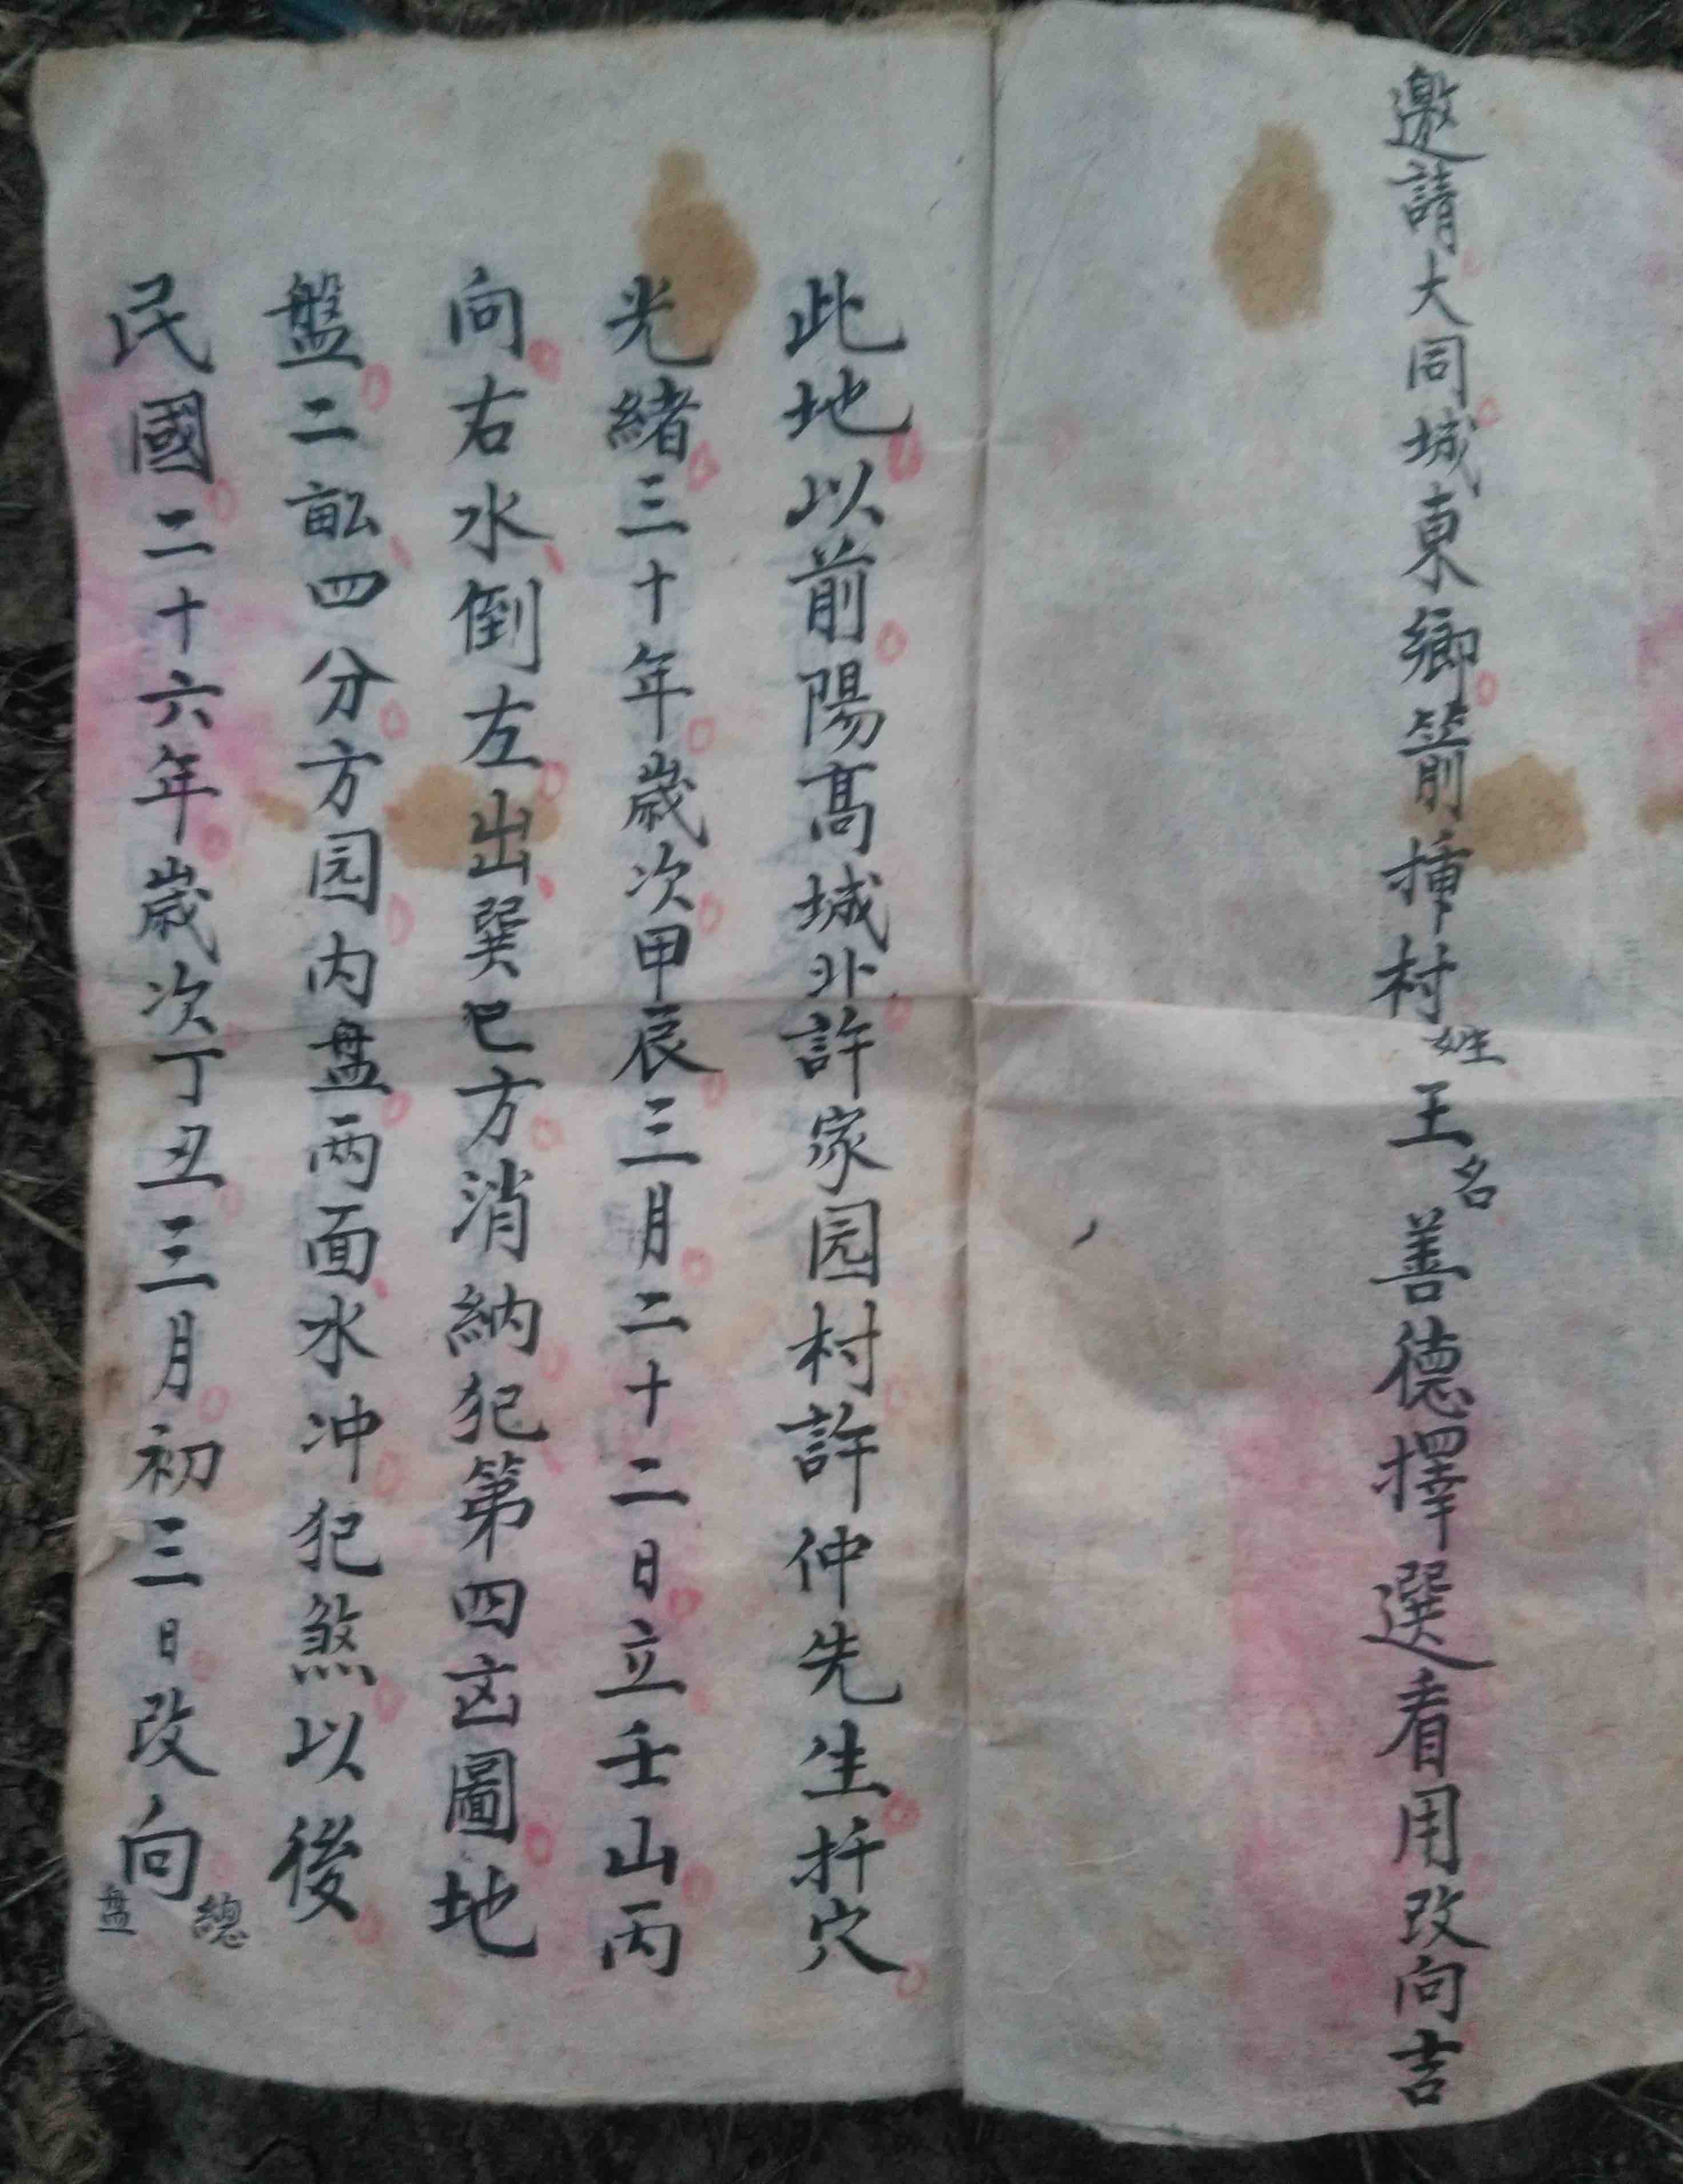 邀請大同城東鄉箭捍村姓王名善德擇選看用改向吉
此地以前陽高城外許家园村許仲先生扦穴
光緒三十年歲次甲辰三月二十二日立壬山丙
向右水倒左出巽巳方消納犯第四凶圖地
盤二畝四分方园内盘两面水冲犯煞以後
民國二十六年歲次丁丑三月初三日改向總盘